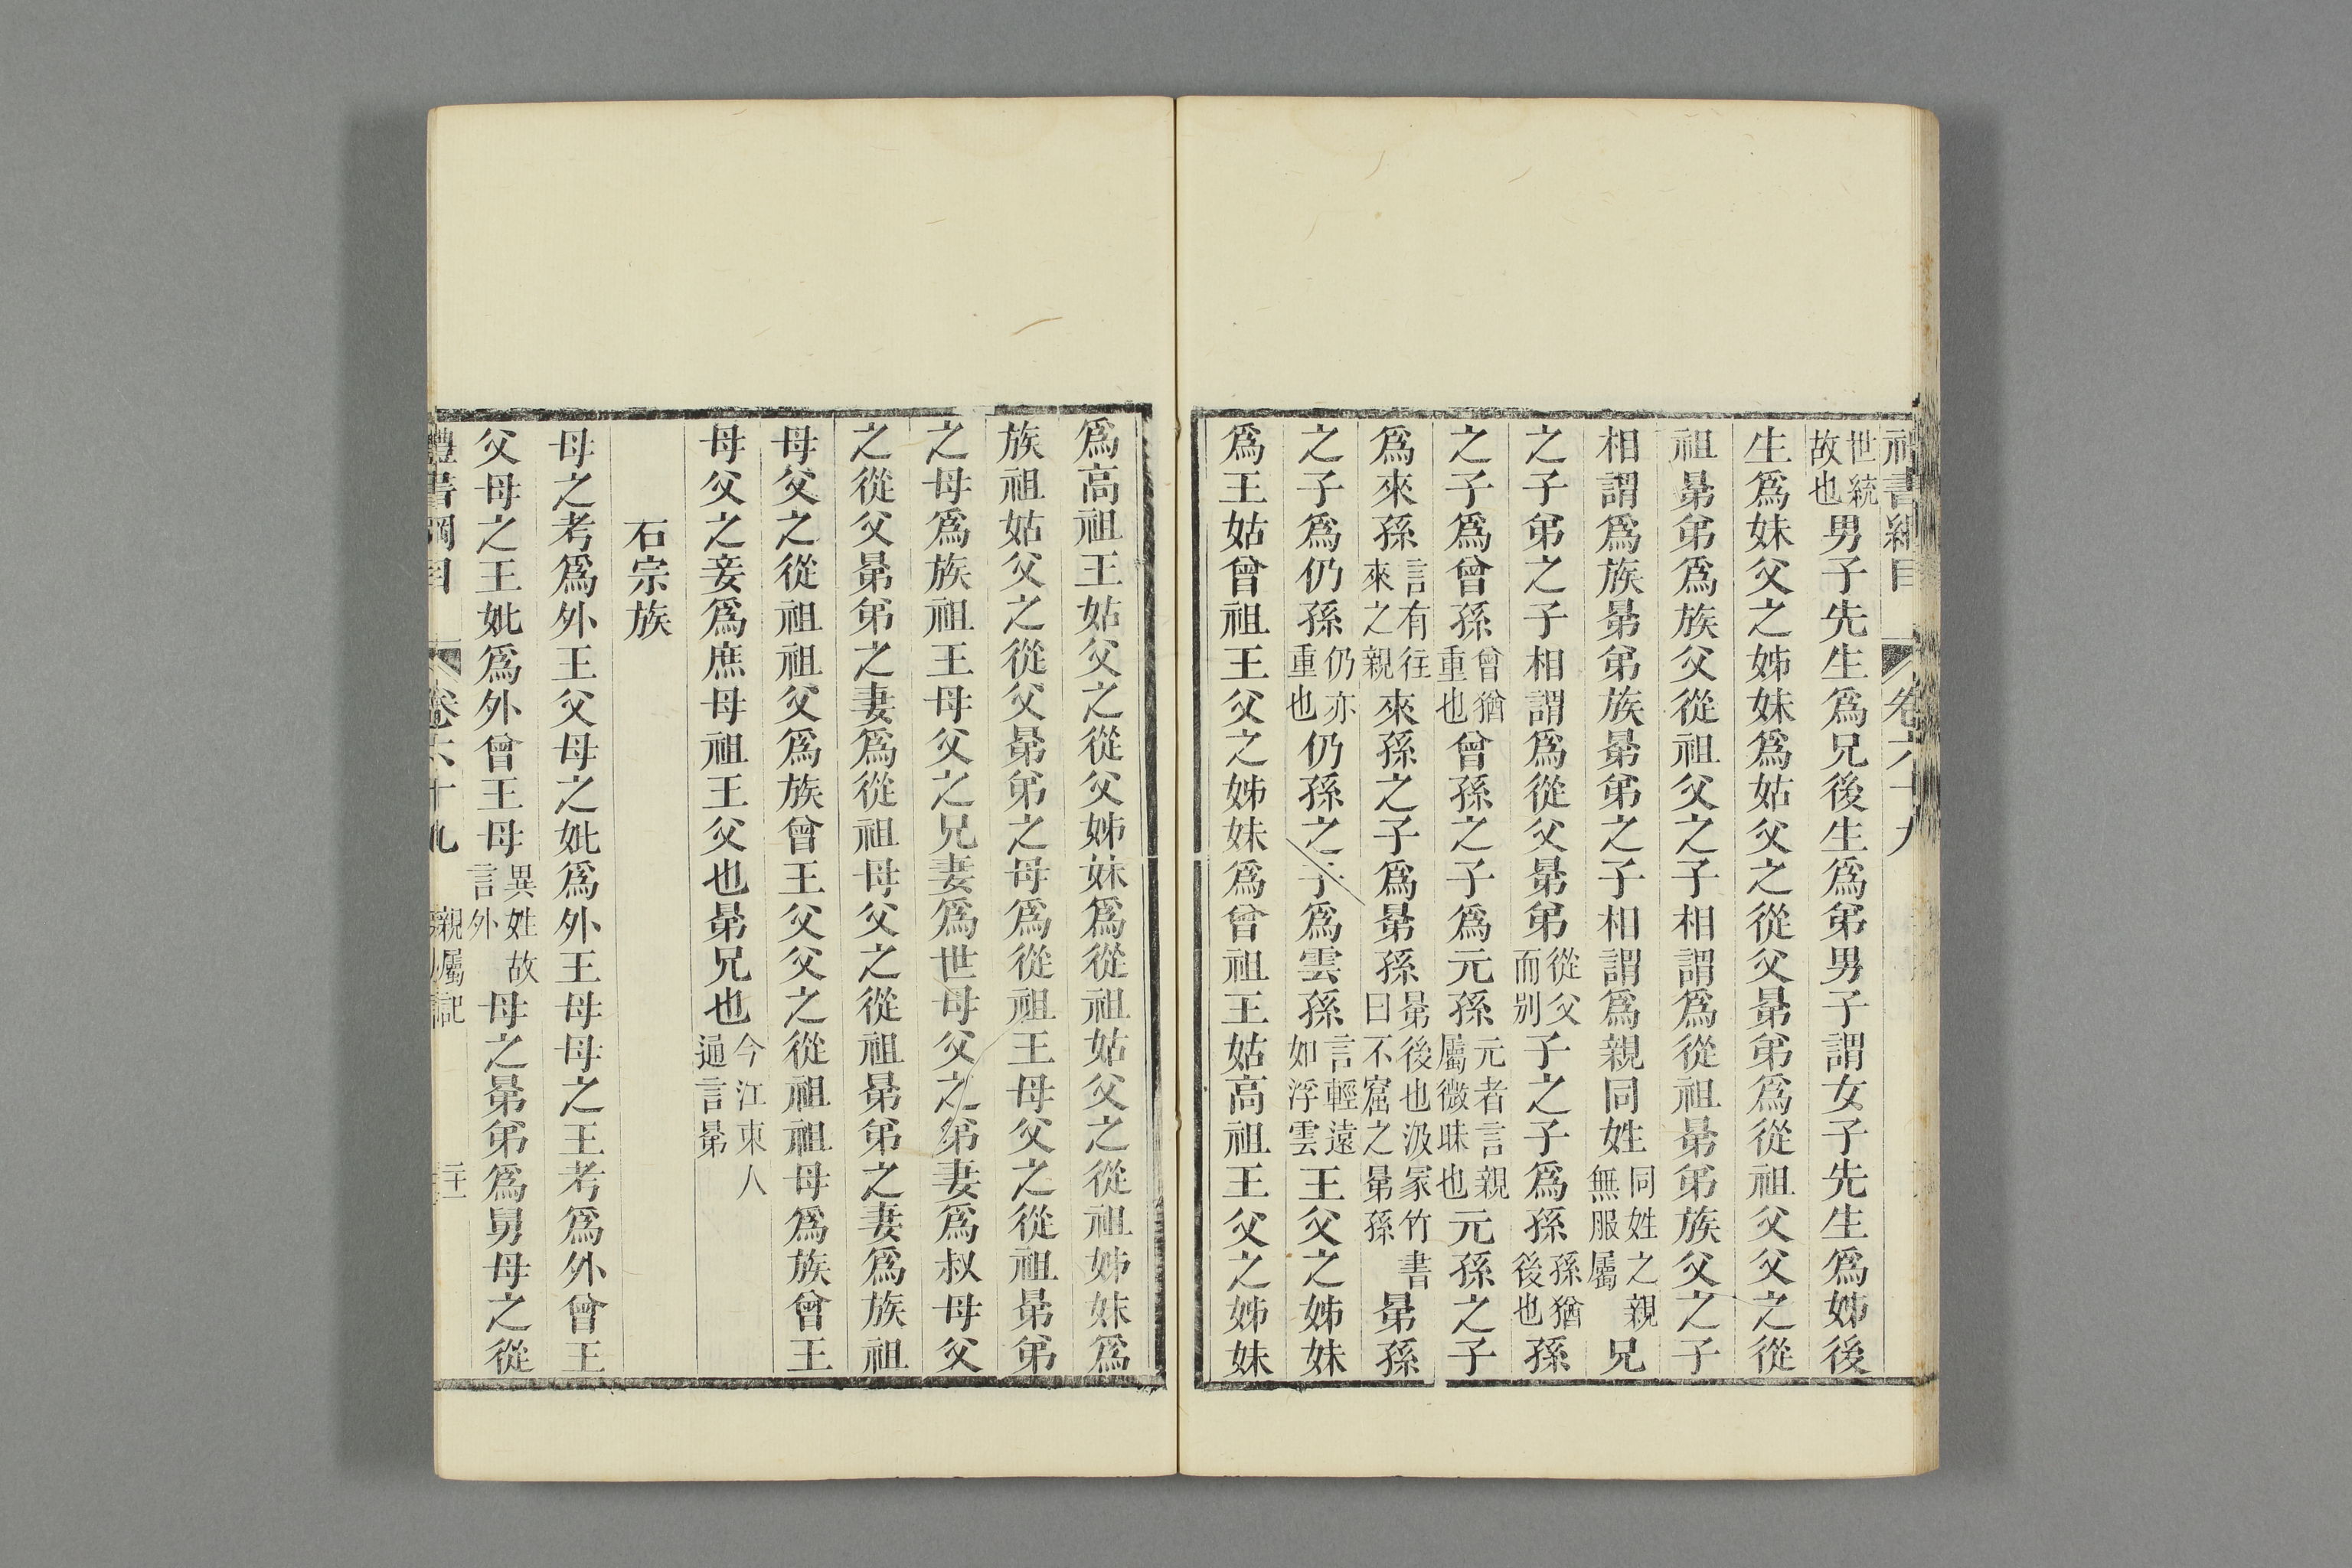 禮書綱目 卷六十九
世統故也男子先生爲兄後生爲弟男子謂女子先生爲姊後
生爲妹父之姊妹爲姑父之從父晜弟爲從祖父父之從
祖晜弟爲族父從祖父之子相謂爲從祖晜弟族父之子
相謂爲族晜弟族晜弟之子相謂爲親同姓同姓之親無服屬兄
之子弟之子相謂爲從父晜弟從父而別子之子爲孫孫猶後也孫
之子爲曾孫曾猶重也曾孫之子爲元孫元者言親屬微昧也元孫之子
爲來孫言有往來之親來孫之子爲晜孫晜後也汲冢竹書曰不窋之晜孫晜孫
之子爲仍孫仍亦重也仍孫之子爲雲孫言輕遠如浮雲王父之姊妹
爲王姑曾祖王父之姊妹爲曾祖王姑高祖王父之姊妹
爲高祖王姑父之從父姊妹爲從祖姑父之從祖姊妹爲
族祖姑父之從父晜弟之母爲從祖王母父之從祖晜弟
之母爲族祖王母父之兄妻爲世母父之弟妻爲叔母父
之從父晜弟之妻爲從祖母父之從祖晜弟之妻爲族祖
母父之從祖祖父爲族曾王父父之從祖祖母爲族曾王
母父之妾爲庶母祖王父也晜兄也今江東人通言晜
石宗族
母之考爲外王父母之妣爲外王母母之王考爲外曾王
父母之王妣爲外曾王母異姓故言外母之晜弟爲舅母之從
禮書綱目 卷六十九 親屬記 二十一